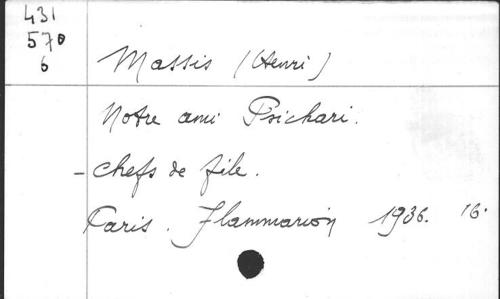 431
570
6
Massis (Henri)
Notre ami Psichari.
- Chefs de file.
Paris. Flammarion 1936. 16°